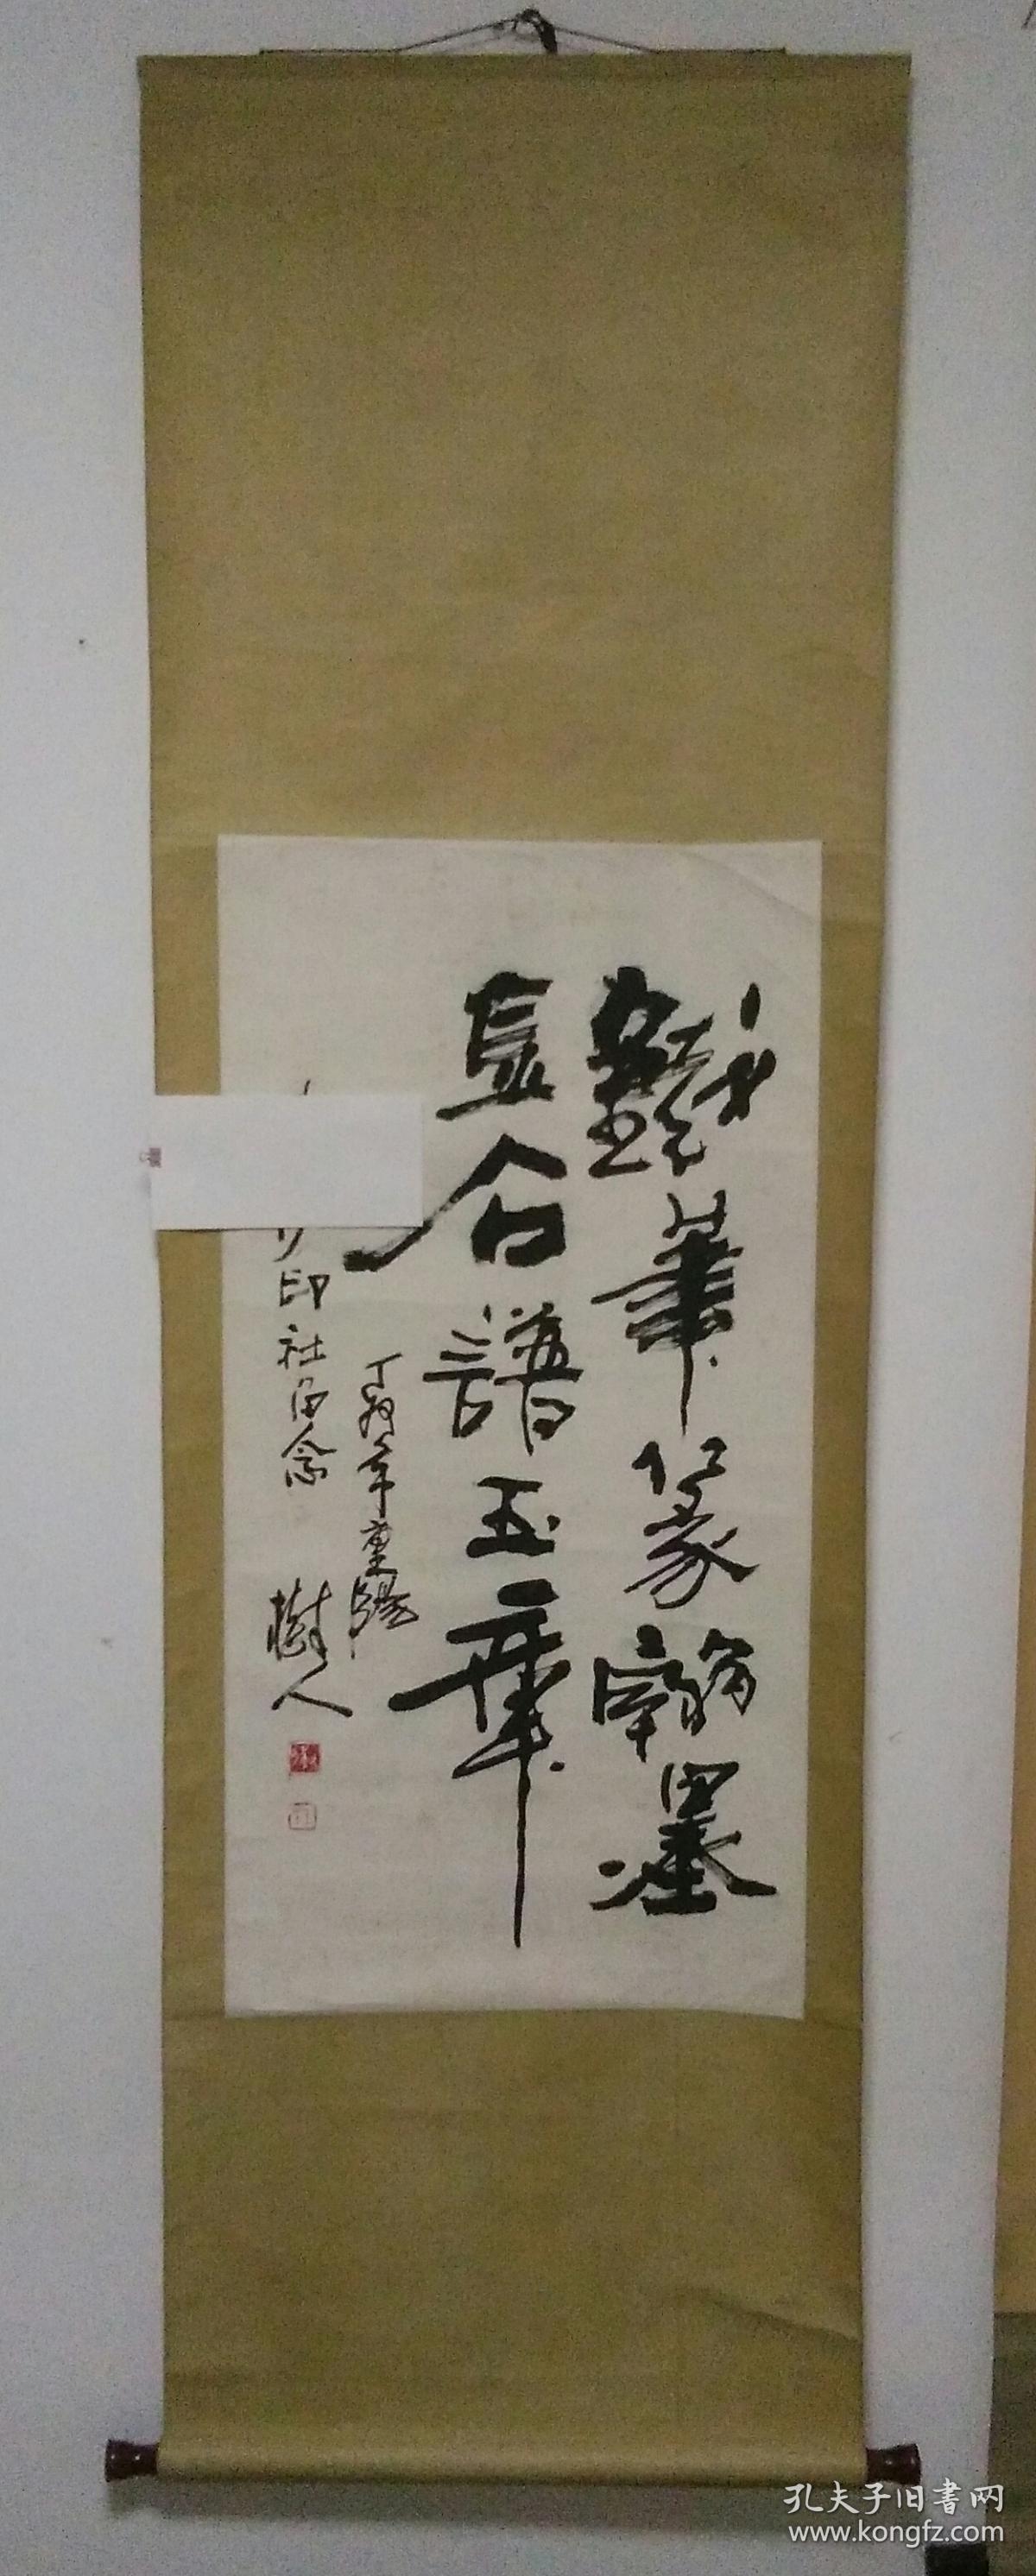 鐵筆篆翰墨
金石譜玉章
丁亥年重陽
印社留念
樹人
孔夫子旧書网
www.kongfz.com